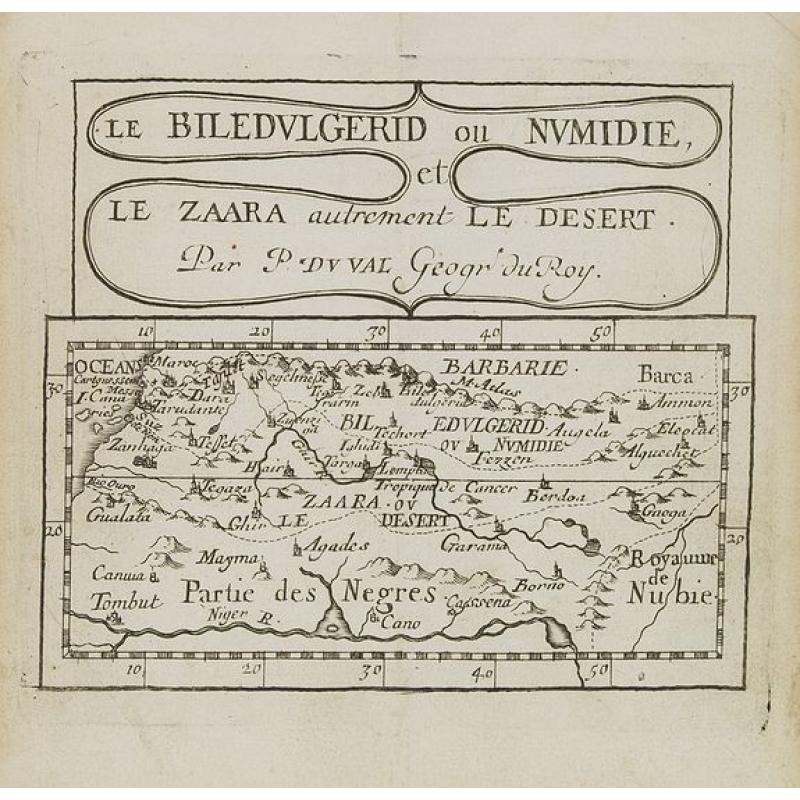 LE BILEDVLGERID ou NVMIDIE,
et
LE ZAARA autrement LE DESERT.
Par P. DV VAL Geogr. du Roy.
10 20 30 40 50
OCEANS Maroc BARBARIE. Barca
30 30
Segelmesse M. Atlas
Messa Dara Zeb Ammon
I. Cana Tarudante
Suz BIL EDVLGERID Augela Eleocat
Zanhaga Tesset Techort OU NVMIDIE Alguechet
Ighidi Fezzen
Hair Targa Lempta
Tegaza Tropique de Cancer Berdoa
ZAARA OV
Gualata Ghir LE DESERT Gaoga
20 20
Magma Agades Garama Royaume
Canuia Borno de
Partie des Negres. Nubie
Tombut Cano Cassena
Niger R.
10 20 30 40 50